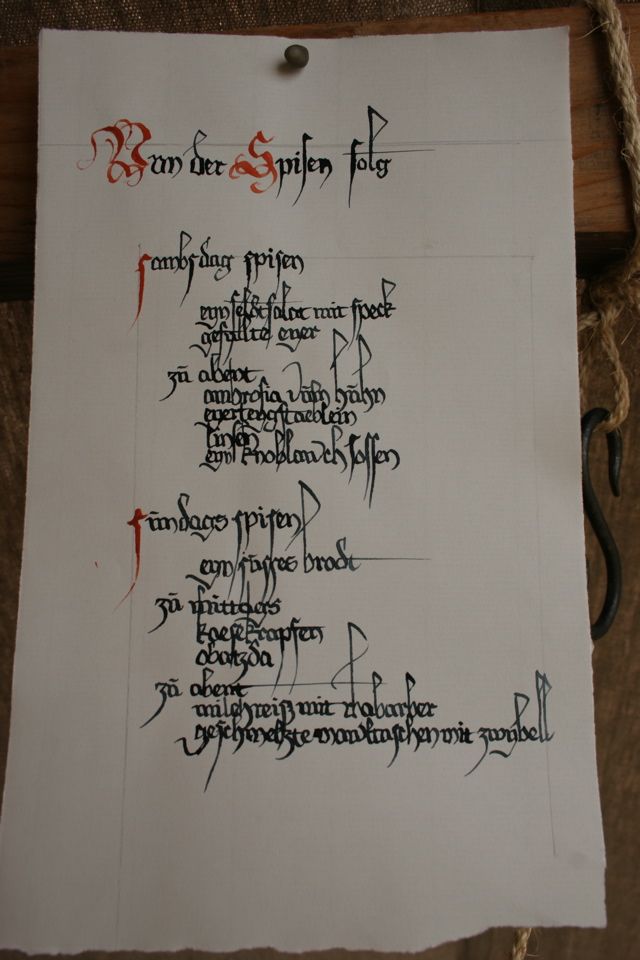 Van der Spisen folg
sambsdag spisen
eyn feldtsalat mit speck
gefyllte eyer
zů abent
ambrosia vům hůhn
eyerteygstaeblein
linsen
eyn knoblawch sossen
sůndags spisen
eyn sůsses brodt
zů mittags
kaesekrapfen
obatzda
zů abent
milchreiß mit rhabarber
geschmeltzte mawltaschen mit zwybell